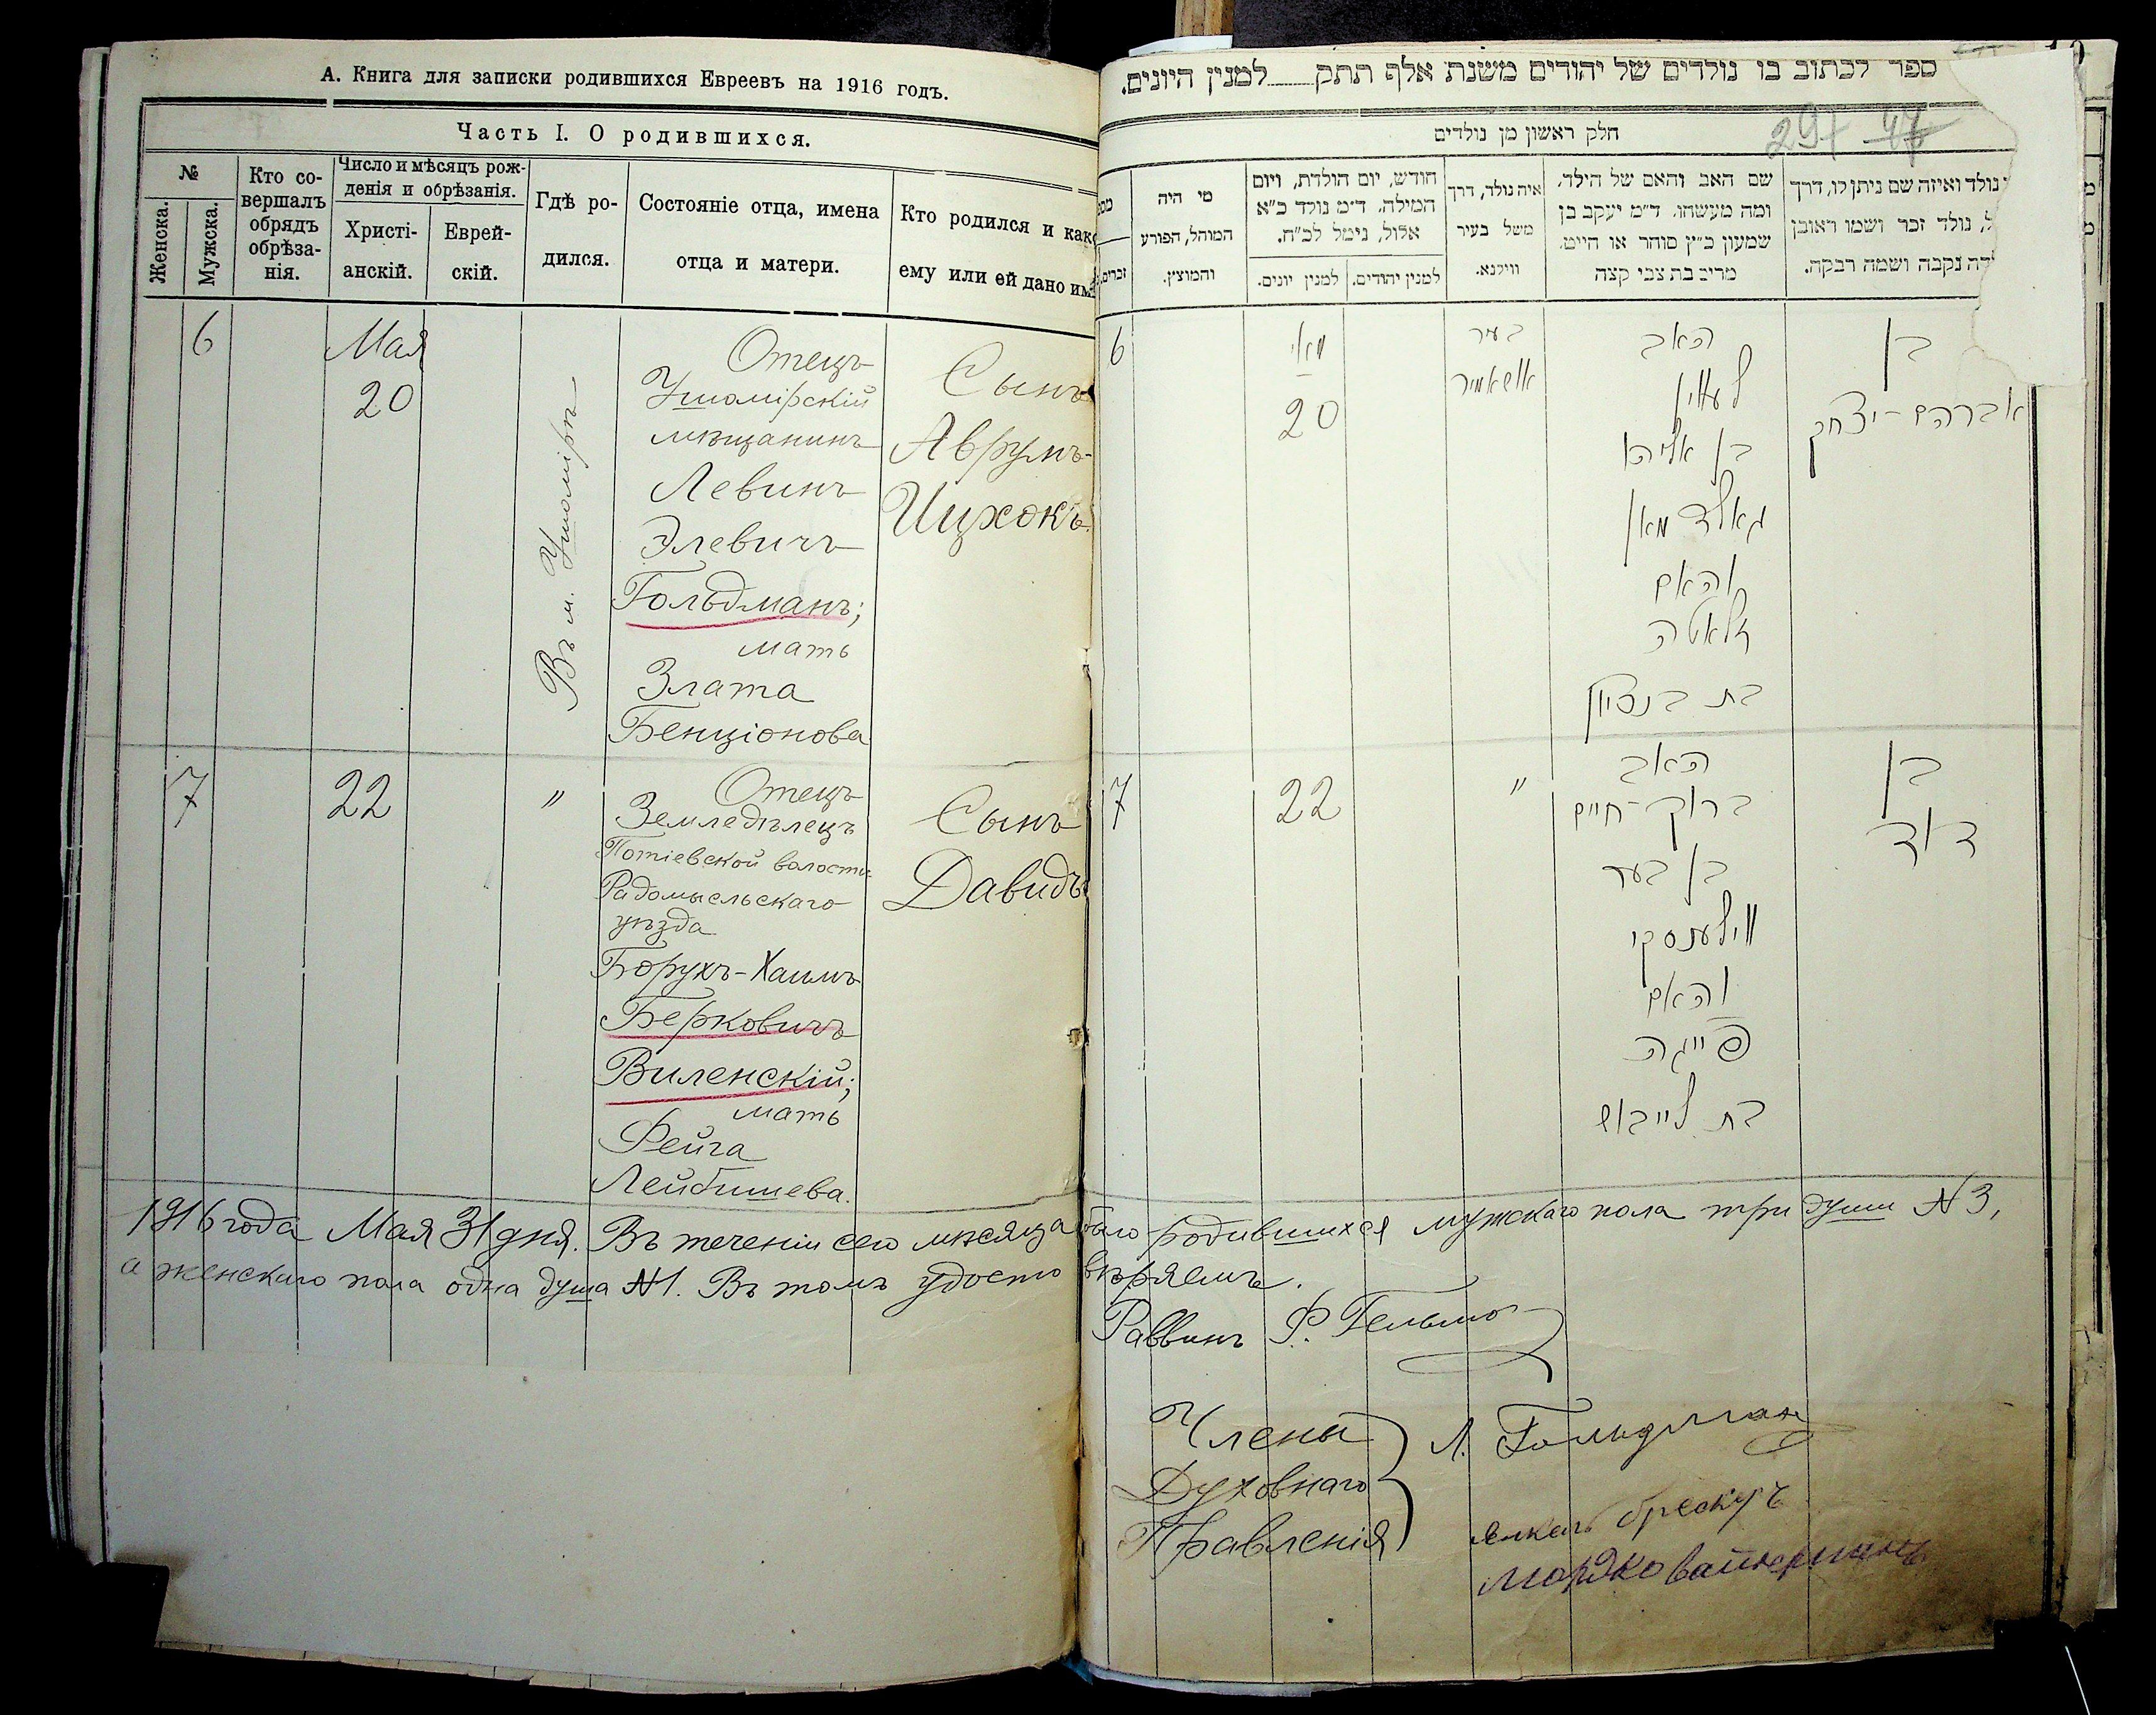 А. Книга для записки родившихся Евреевъ на 1916 годъ.
Часть I. О родившихся.
№
Женска.
Мужска.
Кто со-
вершалъ
обрядъ
обрѣза-
нія.
Число и мѣсяцъ рож-
денія и обрѣзанія.
Христі-
анскій.
Еврей-
скій.
Гдѣ ро-
дился.
Состояніе отца, имена
отца и матери.
Кто родился и как
ему или ей дано им
6
Мая
20
Въ м. Ушомірѣ
Отецъ
Ушомірскій
мѣщанинъ
Левинъ
Элевичъ
Гольдманъ;
мать
Злата
Бенціонова
Сынъ
Аврумъ-
Ицхокъ
7
22
"
Отецъ
Земледѣлецъ
Потіевской волости
Радомысльскаго
уѣзда
Борухъ-Хаимъ
Берковичъ
Виленскій;
мать
Фейга
Лейбишева.
Сынъ
Давидъ
ספר לכתוב בו נולדים של יהודים משנת אלף תתק למנין היונים.
חלק ראשון מן נולדים
297 47
נולד ואיזה שם ניתן לו, דרך
ל, נולד זכר ושמו ראובן
דה נקבה ושמה רבקה.
שם האב והאם של הילד,
ומה מעשהו. ד״מ יעקב בן
שמעון כ״ץ סוחר או חייט.
מרים בת צבי קצה
איה נולד, דרך
משל בעיר
ווילנא.
חודש, יום הולדת, ויום
המילה. ד״מ נולד כ״א
אלול, נימל לכ״ח.
למנין יהודים.
למנין יונים.
מי היה
המוהל, הפורע
והמוצץ.
זכרים.
6
מאי
20
בעיר
אושאמיר
האב
לעווין
בן אליהו
גאלדמאן
והאם
זלאטה
בת בנציון
בן
אברהם-יצחק
7
22
"
האב
ברוך-חיים
בן בער
ווילענסקי
והאם
פייגה
בת לייבוש
בן
דוד
1916 года Мая 31 дня. Въ теченіи сего мѣсяца было родившихся мужскаго пола три души №3,
а женскаго пола одна душа №1. Въ томъ удостовѣряемъ.
Раввинъ Ф.
Члены
Духовнаго
Правленія
Л. Гольдман
Мордко